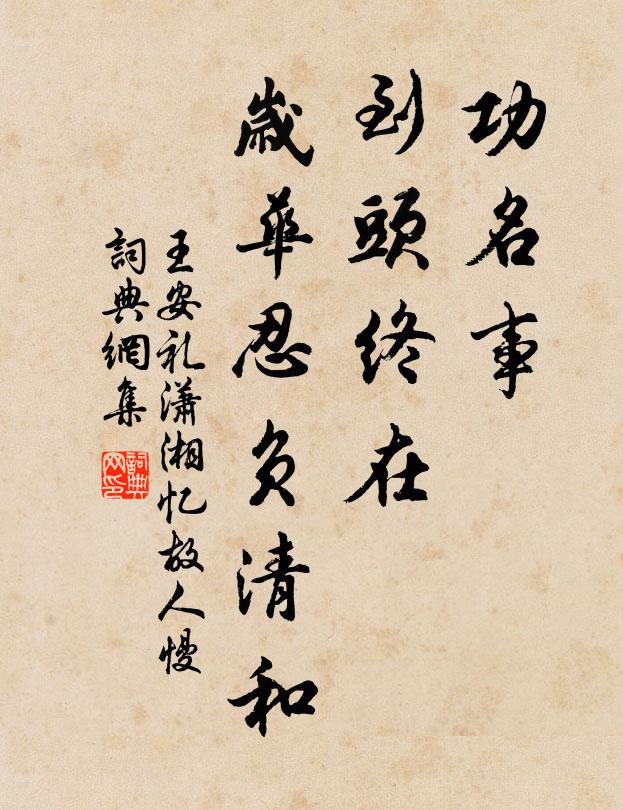 功名事
到頭終在
歲華忍負清和
王安礼瀟湘忆故人慢
詞典網集
詞典
网印